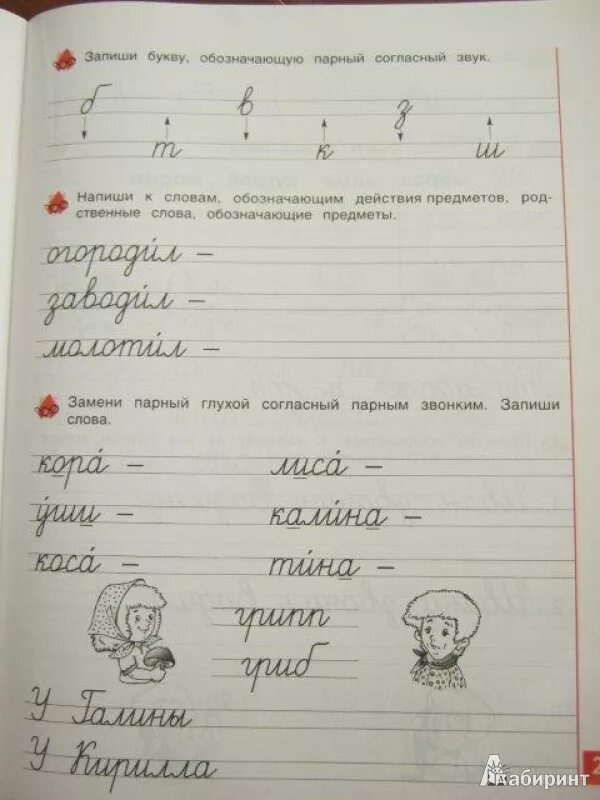 Запиши букву, обозначающую парный согласный звук.
б в з
т к ш
Напиши к словам, обозначающим действия предметов, род-
ственные слова, обозначающие предметы.
огороди́л –
заводи́л –
молоти́л –
Замени парный глухой согласный парным звонким. Запиши
слова.
кора́ – лиса́ –
у́ши – кали́на –
коса́ – ти́на –
грипп
гриб
У Галины
У Кирилла
2
Лабиринт